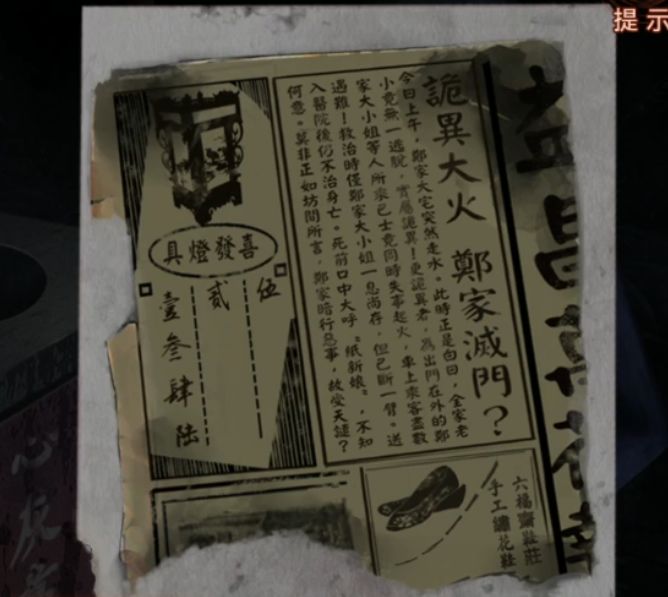 提示
詭異大火 鄭家滅門？
今日上午，鄭家大宅突然走水。此時正是白日，全家老
小竟無一逃脫，實屬詭異！更詭異者，為出門在外的鄭
家大小姐等人所乘巴士竟同時失事起火，車上乘客盡數
遇難！救治時僅鄭家大小姐一息尚存，但已斷一臂。送
入醫院後仍不治身亡。死前口中大呼“紙新娘”，不知
何意。莫非正如坊間所言，鄭家暗行惡事，故受天譴？
喜發燈具
伍
貳
壹叁肆陸
六福齋鞋莊
手工繡花鞋